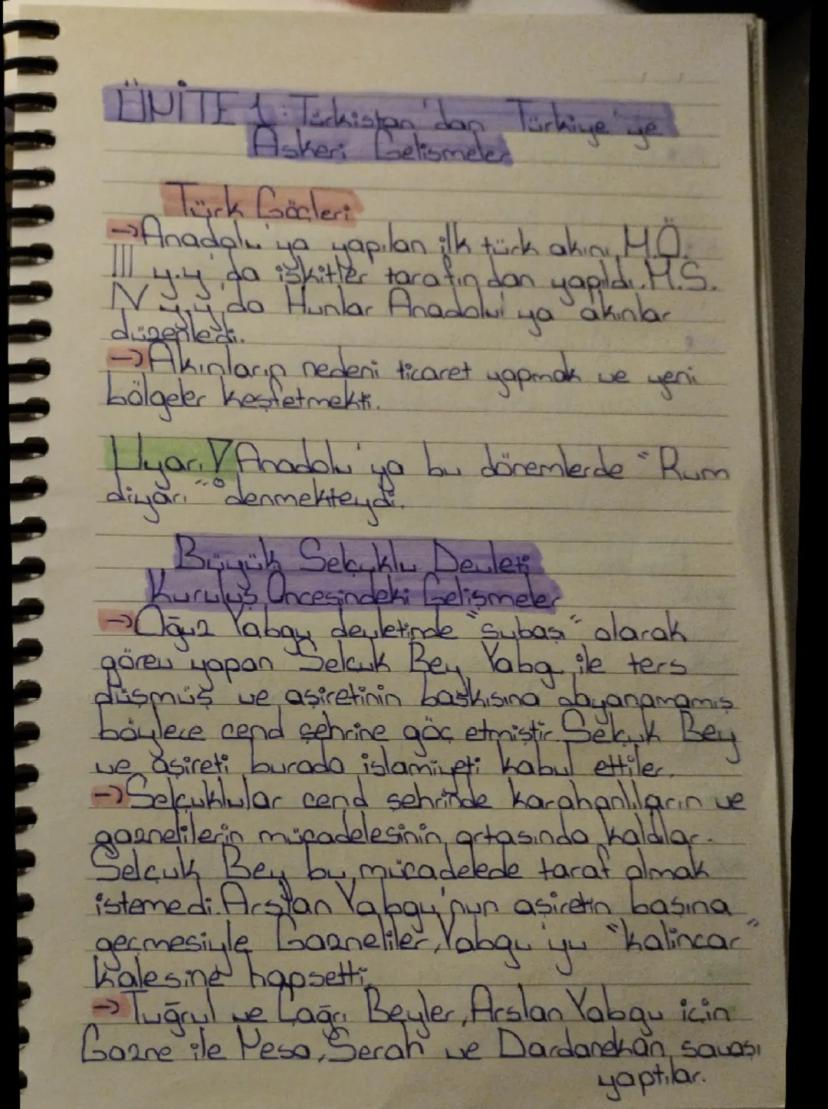 ÜNİTE 1: Türkistan'dan Türkiye'ye
Askeri Gelişmeler
Türk Göçleri
→Anadolu'ya yapılan ilk türk akını M.Ö.
III y.y'da işkitler tarafından yapıldı. M.S.
IV y.y.da Hunlar Anadolu'ya akınlar
düzenledi.
→Akınların nedeni ticaret yapmak ve yeni
bölgeler keşfetmekti.
Uyarı! Anadolu'ya bu dönemlerde "Rum
diyarı" denmekteydi.
Büyük Selçuklu Devleti
Kuruluş Öncesindeki Gelişmeler
→Oğuz Yabgu devletinde "subaşı" olarak
görev yapan Selcuk Bey Yabg ile ters
düşmüş ve aşiretinin baskısına dayanamamış
böylece cend şehrine göç etmiştir. Selçuk Bey
ve aşireti burada islamiyeti kabul ettiler.
→Selçuklular cend şehrinde karahanlıların ve
gaznelilerin mücadelesinin ortasında kaldılar.
Selçuk Bey bu mücadelede taraf olmak
istemedi. Arslan Yabgu'nun aşiretin başına
geçmesiyle Gazneliler, Yabgu'yu "kalincar"
kalesine hapsetti.
→Tuğrul ve Çağrı Beyler, Arslan Yabgu için
Gazne ile Nesa, Serah ve Dardanekan savaşı
yaptılar.